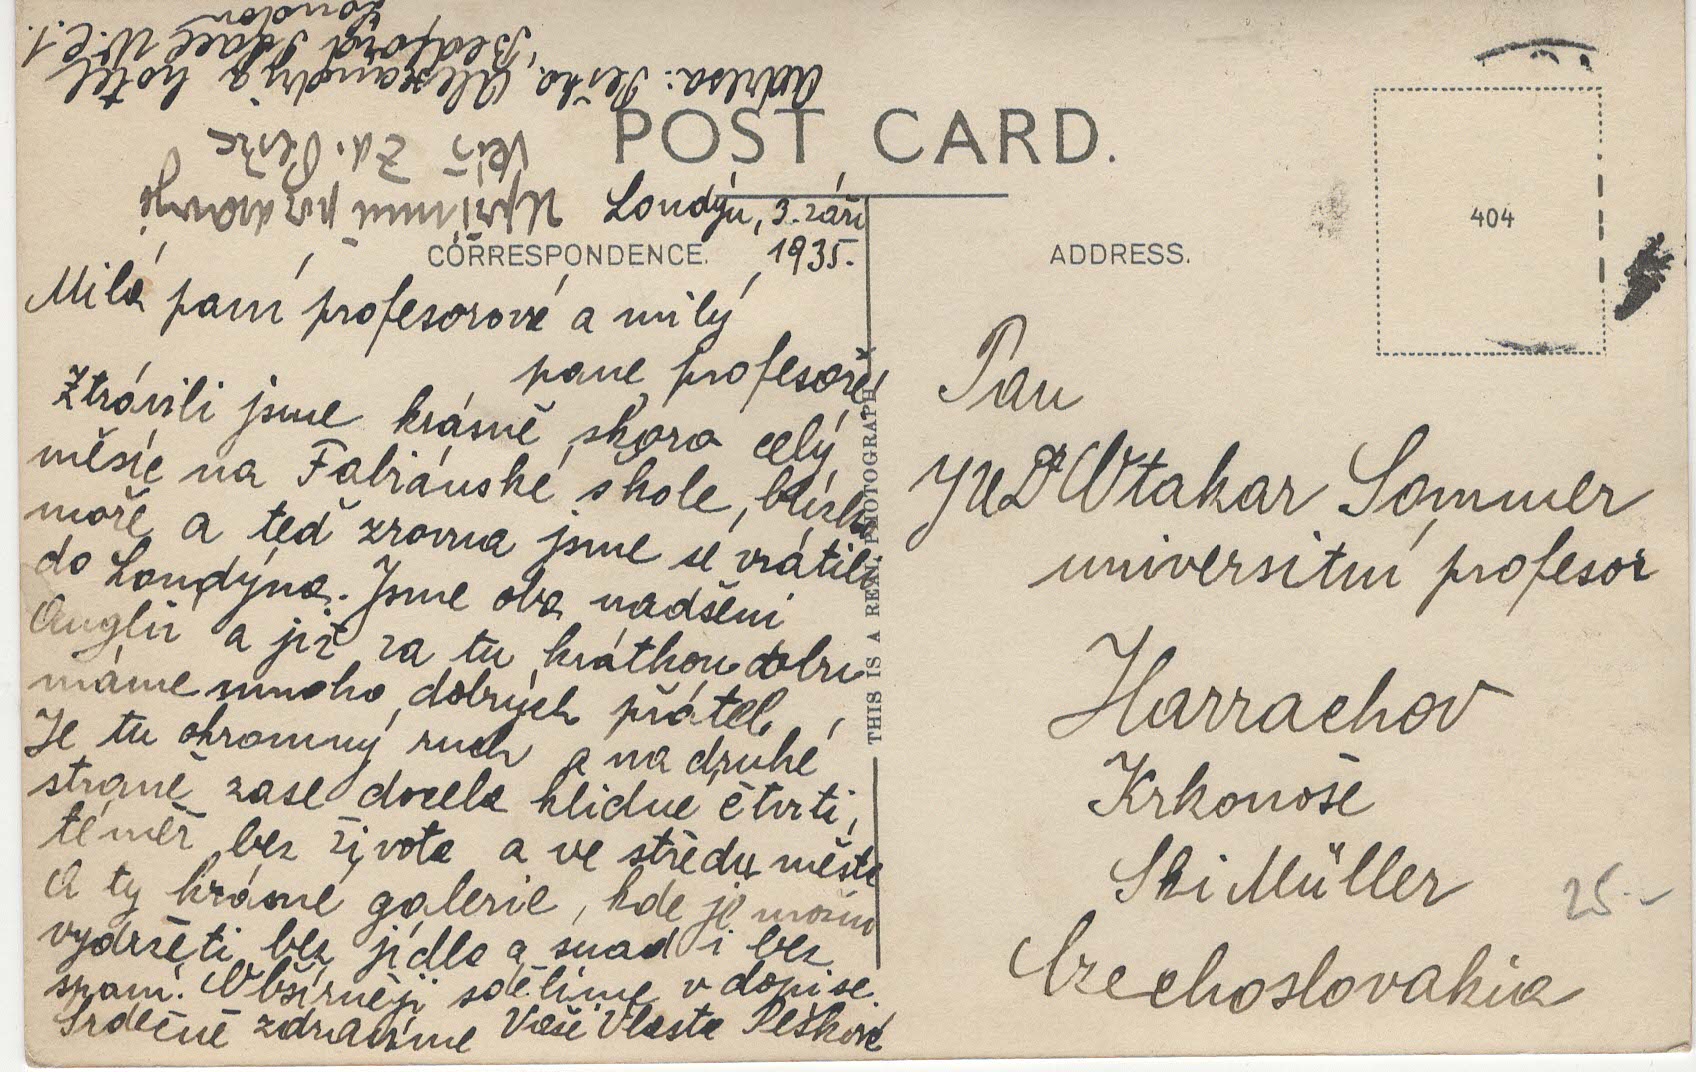 Adresa: Peška, Alexandra hotel
Bedford Place W.C.1.
London
Upřímně pozdravuje
Váš Zd. Peška
POST CARD.
Londýn, 3. září
1935.
CORRESPONDENCE.
Milá paní profesorová a milý
pane profesore!
Ztrávili jsme krásně skoro celý
měsíc na Fabiánské škole, blízko
moře a teď zrovna jsme se vrátili
do Londýna. Jsme oba nadšeni
Anglií a již za tu krátkou dobu
máme mnoho dobrých přátel.
Je tu ohromný ruch a na druhé
straně zase docela klidné čtvrti,
téměř bez života a ve středu města
A ty krásné galerie, kde je možno
vydržeti bez jídla a snad i bez
spaní. Obšírněji sdělíme v dopise.
Srdečně zdravíme Vaši Vlasta Pešková
THIS IS A REAL PHOTOGRAPH
ADDRESS.
404
Pan
JUDr Otakar Sommer
universitní profesor
Harrachov
Krkonoše
Ski Müller
Czechoslovakia
25.-